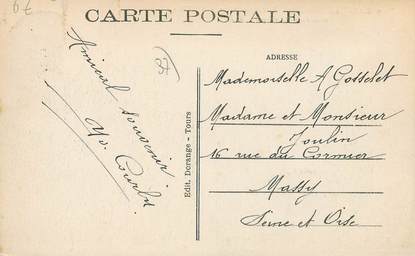 CARTE POSTALE
Amical souvenir
Yv. Courbé
Edit. Dorange - Tours
ADRESSE
Mademoiselle A Gosselet
Madame et Monsieur
Joulin
16 rue du Cormier
Massy
Seine et Oise